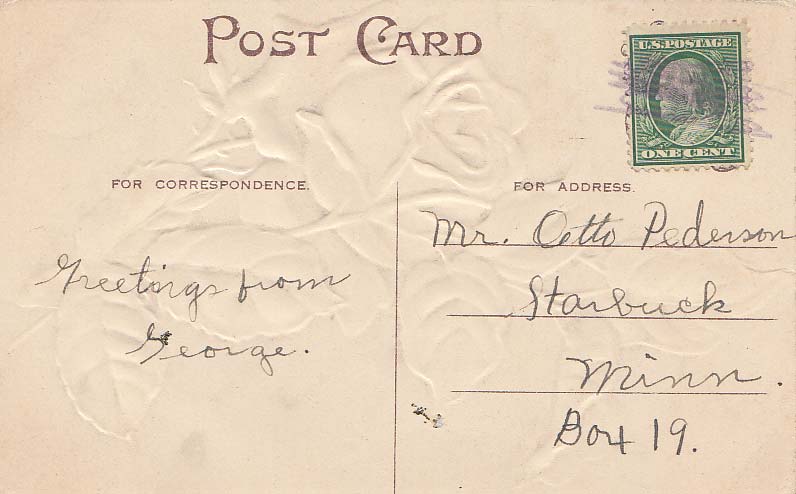 POST CARD
U.S. POSTAGE
ONE CENT
FOR CORRESPONDENCE.
FOR ADDRESS.
Greetings from
George.
Mr. Otto Pederson
Starbuck
Minn.
Box 19.